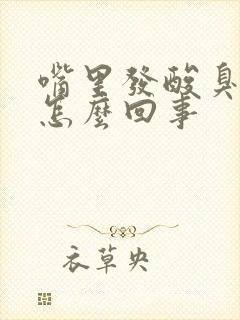 嘴里發酸臭
怎麼回事
衣草央